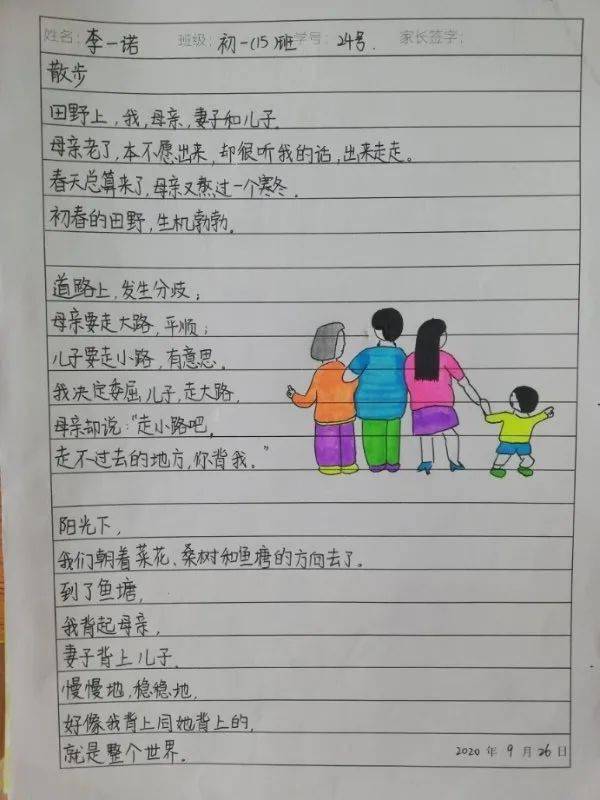 姓名: 李一诺 班级: 初一(15)班 学号: 24号. 家长签字:
散步
田野上,我,母亲,妻子和儿子.
母亲老了,本不愿出来,却很听我的话,出来走走。
春天总算来了,母亲又熬过一个寒冬.
初春的田野,生机勃勃。
道路上,发生分歧;
母亲要走大路,平顺;
儿子要走小路,有意思.
我决定委屈儿子,走大路.
母亲却说:“走小路吧,
走不过去的地方,你背我。”
阳光下,
我们朝着菜花、桑树和鱼塘的方向去了。
到了鱼塘,
我背起母亲,
妻子背上儿子.
慢慢地,稳稳地,
好像我背上同她背上的,
就是整个世界.
2020 年 9 月 26 日